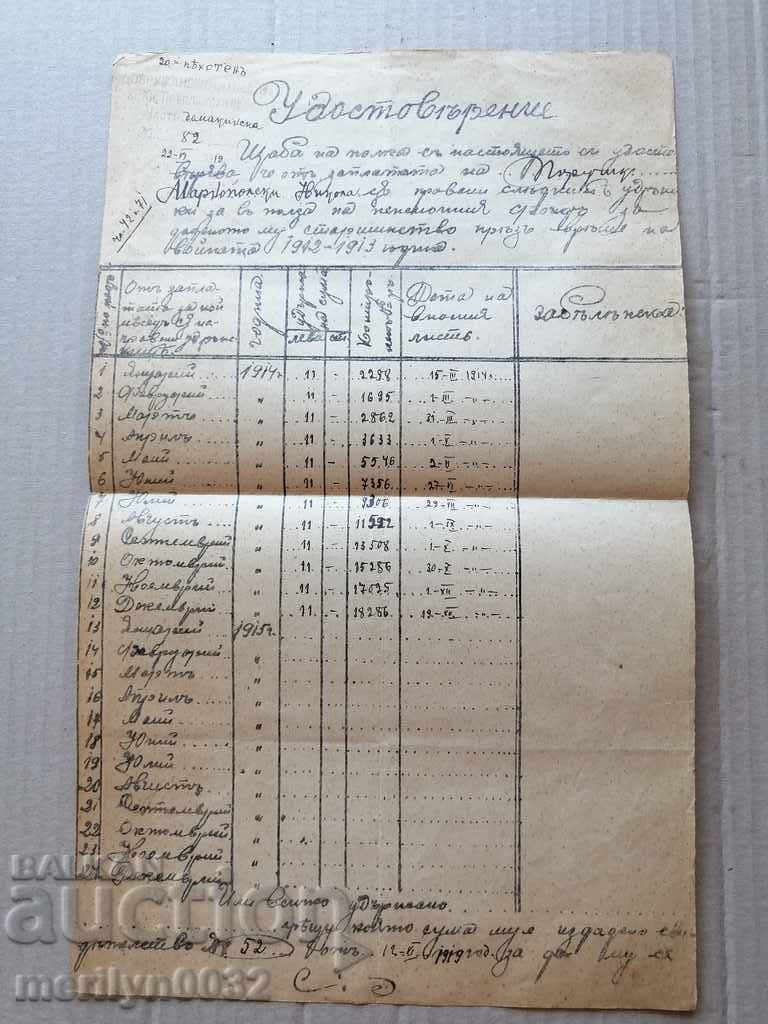 20-й пѣхотенъ
домакинска
82
22-VI 19
чл. 42 и 71
Удостовѣрение
Щаба на полка съ настоящето си удосто
вѣрява че отъ заплатата на
Марков Никола са правени следните удръж
ки за въ полза на пенсионния фондъ за
даденото му старшинство прѣзъ врѣме на
войната 1912-1913 година.
№ по редъ | Отъ запла тата за кой мѣсецъ са на правени удръж | година | удържана сума лева ст. | | Дата на вносния листъ. | забѣлѣжка:
1 Януарий 1914г. 11 - 2298 15-II 1914г.
2 Февруарий " 11 - 1695 1-III -"-
3 Мартъ " 11 - 2862 31-III -"-
4 Априлъ " 11 - 3633 1-V -"-
5 Май " 11 - 5546 2-VI -"-
6 Юний " 11 - 7356 27-VI -"-
7 Юлий " 11 - 9306 29-VII -"-
8 Августъ " 11 - 1-IX -"-
9 Септемврий " 11 - 13508 1-X -"-
10 Октомврий " 11 - 15286 30-X -"-
11 Ноемврий " 11 - 17035 1-XII -"-
12 Декемврий " 11 - 18286 19-XII -"-
13 Януарий 1915г.
14 Февруарий "
15 Мартъ "
16 Априлъ "
17 Май "
18 Юний "
19 Юлий "
20 Августъ "
21 Септемврий "
22 Октомврий "
23 Ноемврий "
24 Декемврий "
Или Всичко удържано
срѣщу която сума му е издадено сви
дѣтелство № 52 отъ 12-VI 1919 год. за да му се
BALKAN
auction
merilyn0032